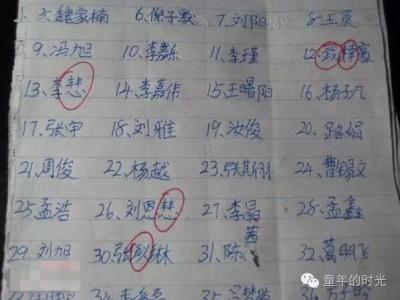 5. 魏家楠 6. 倪子默 7. 刘阳 8. 王宸
9. 冯旭 10. 李嘉乐 11. 李瑾 12.
13. 李慧 14. 李嘉伟 15. 王曙阳 16. 杨子凡
17. 张宇 18. 刘雅 19. 汝俊 20. 路娟
21. 周俊 22. 杨越 23. 张斯栩 24. 曹锡文
25. 孟浩 26. 刘恩慧 27. 李晶 28. 孟鑫
29. 刘旭 30. 张彩琳 31. 陈茜 32. 葛明飞
童年的时光